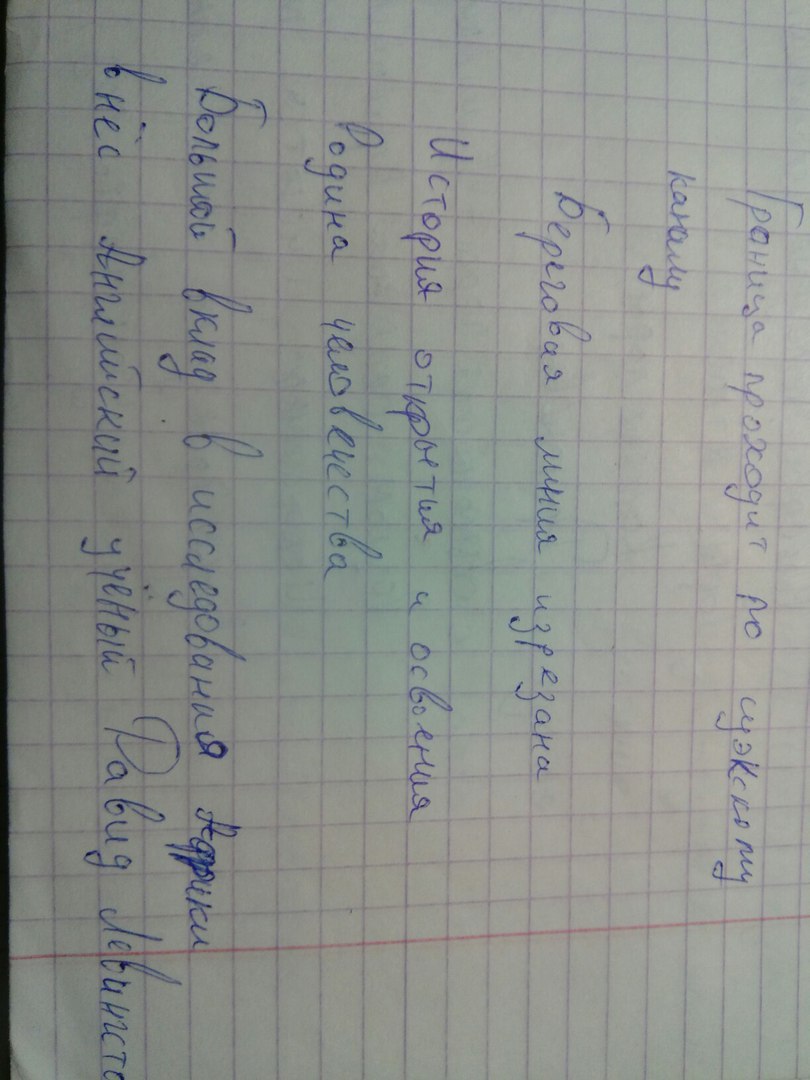 Граница проходит по суэкскому
каналу
Береговая линия изрезана
История открытия и освоения
Родина человечества
Большой вклад в исследования Африки
внёс Английский учёный Давид Левингсто